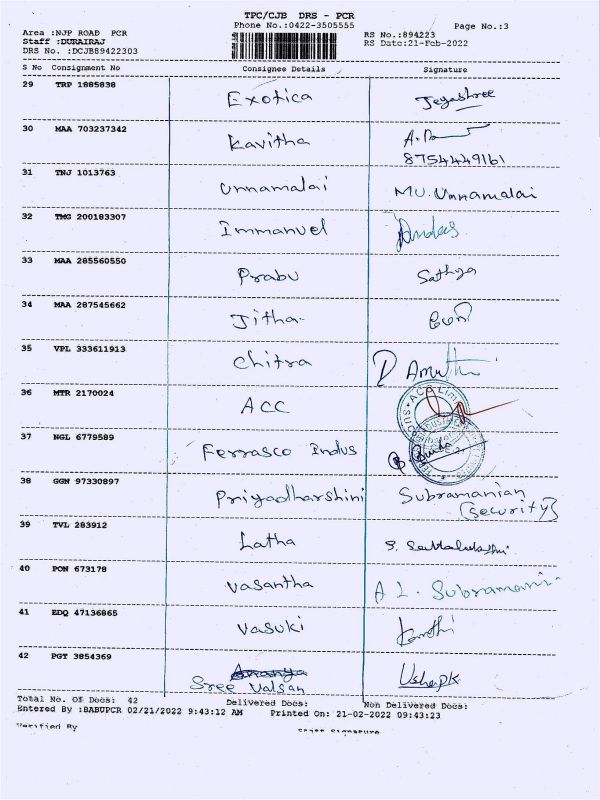 TPC/CJB DRS - PCR
Phone No.:0422-3505555
Page No.:3
Area :NJP ROAD PCR
Staff :DURAIRAJ
DRS No. :DCJB89422303
RS No.:894223
RS Date:21-Feb-2022
S No Consignment No Consignee Details Signature
29 TRP 1885838 Exotica Jegashree
30 MAA 703237342 Kavitha
8754449161
31 TNJ 1013763 Unnamalai MU. Unnamalai
32 TMG 200183307 Immanuel
33 MAA 285560550 Prabu Sathya
34 MAA 287545662 Jitha
35 VPL 333611913 Chitra
36 MTR 2170024 ACC
37 NGL 6779589 Ferrasco Indus
38 GGN 97330897 Priyadharshini Subramanian
(Security)
39 TVL 283912 Latha
40 PON 673178 Vasantha A L. Subramani
41 EDQ 47136865 Vasuki
42 PGT 3854369 Ananya
Sree Valsan
Total No. Of Docs: 42 Delivered Docs: Non Delivered Docs:
Entered By :BABUPCR 02/21/2022 9:43:12 AM Printed On: 21-02-2022 09:43:23
Verified By